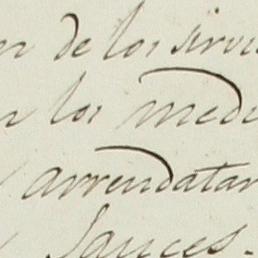 de los sirvi
los medi
arrendatar
Sauces.